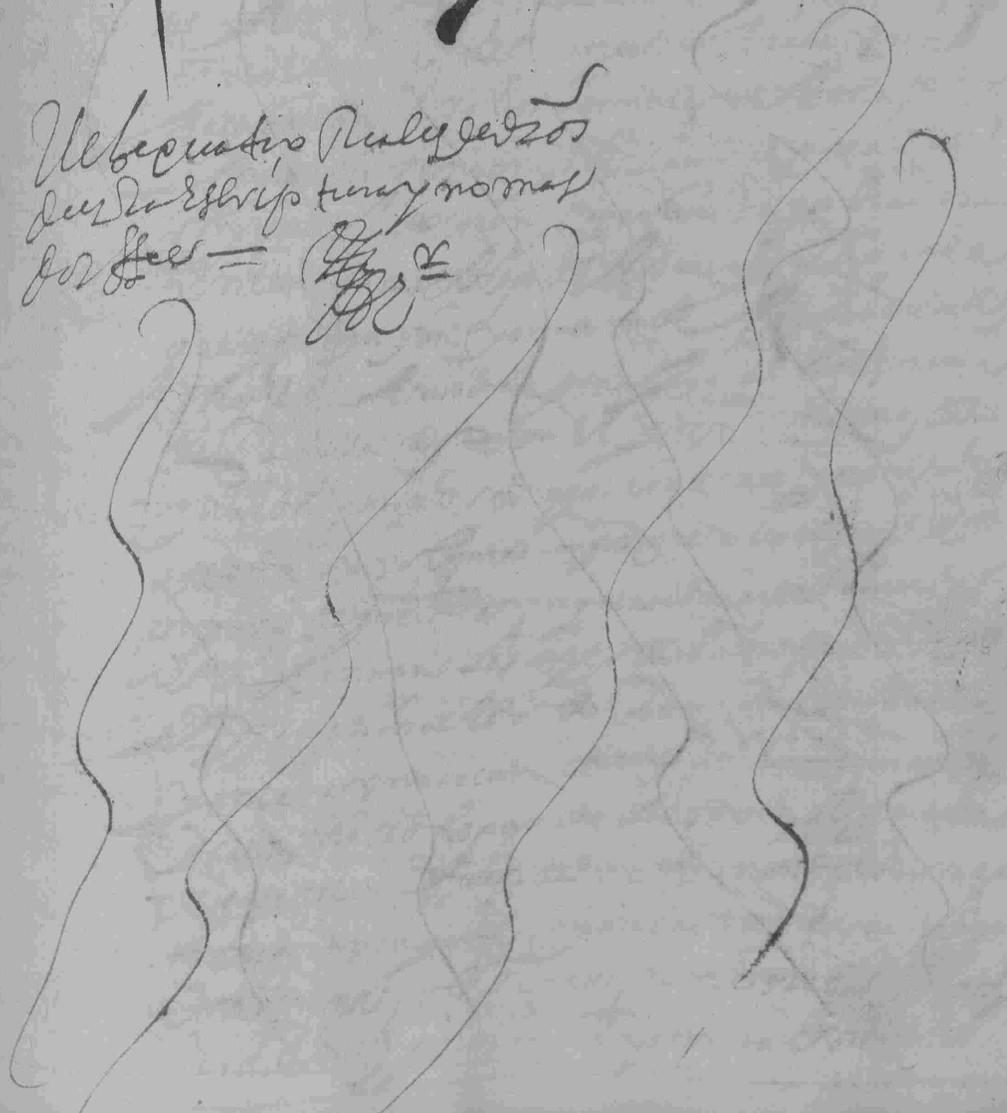 llebe quatro Reales de dros
desta escriptura y no mas
doy ffee =